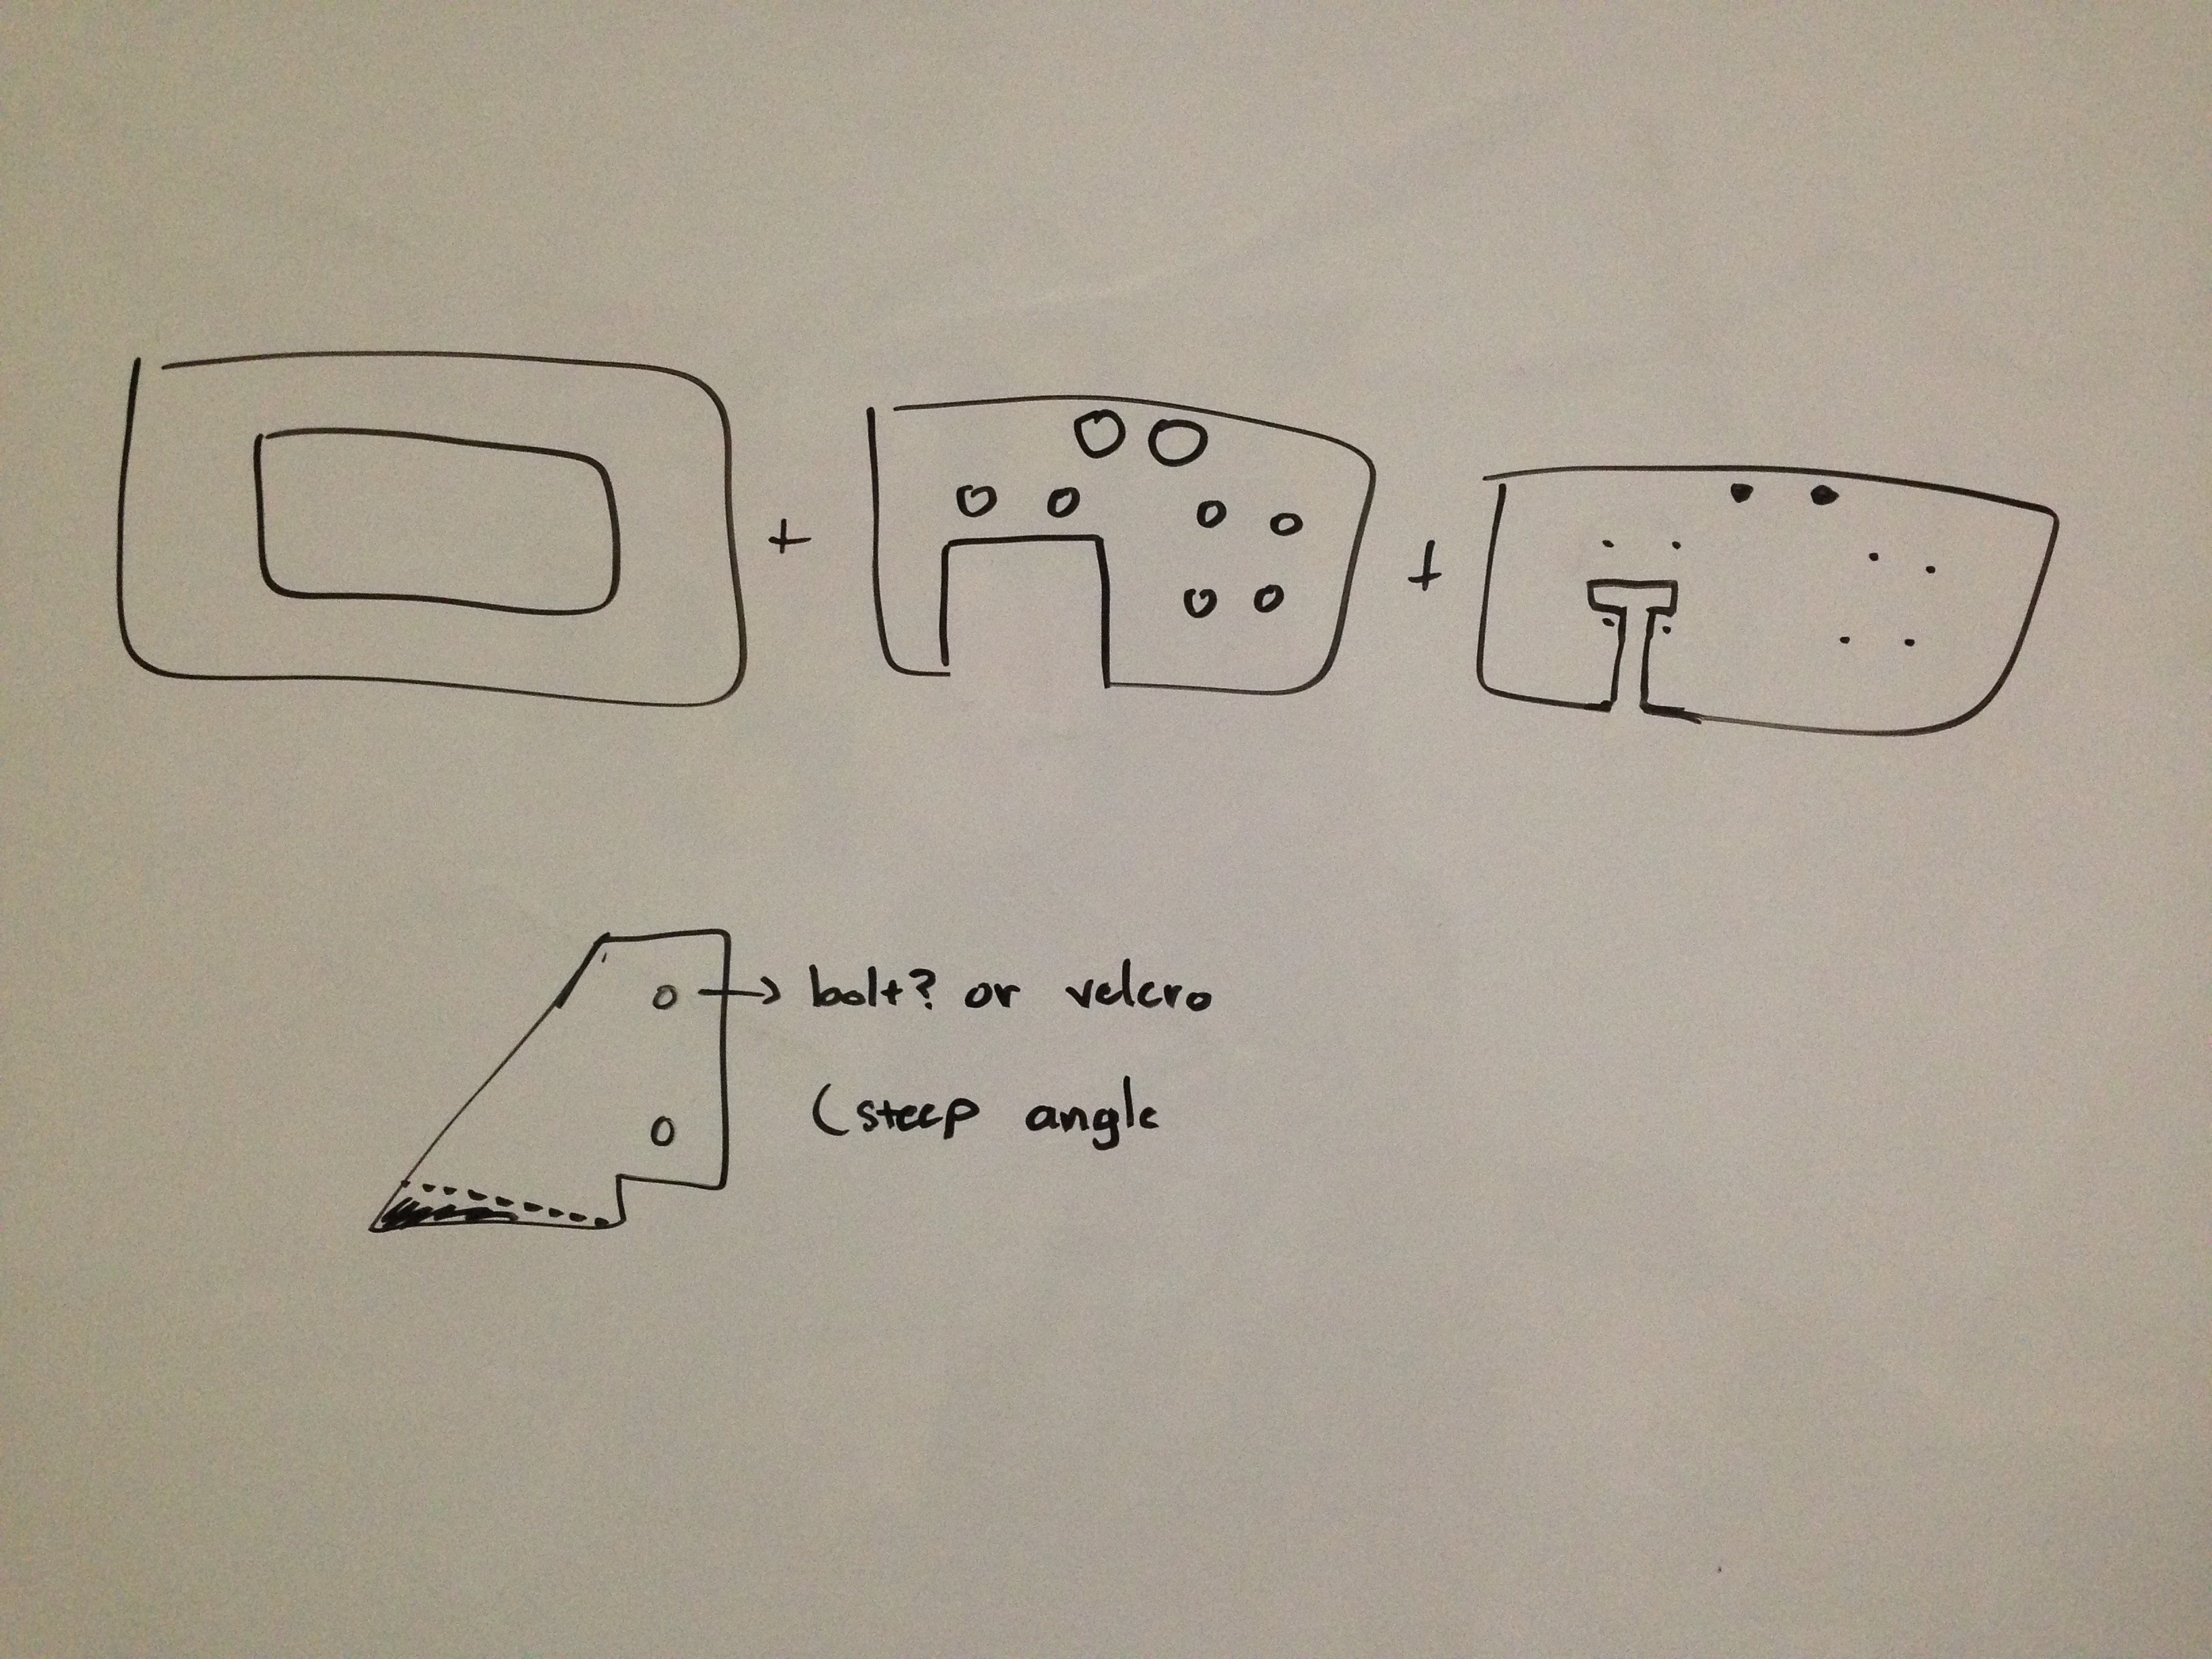 +
+
→ bolt? or velcro
(steep angle